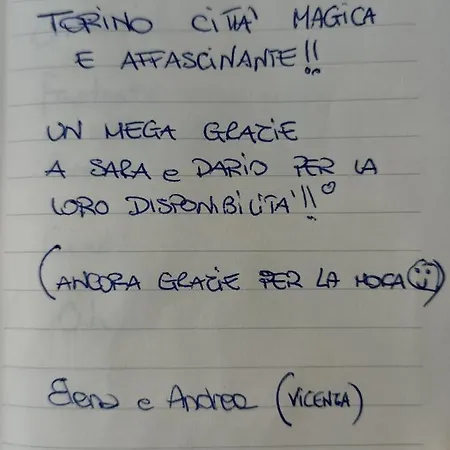 TORINO CITTA' MAGICA
E AFFASCINANTE!!
UN MEGA GRAZIE
A SARA e DARIO PER LA
LORO DISPONIBILITA'!!
(ANCORA GRAZIE PER LA MOCA☺)
Elena e Andrea (VICENZA)